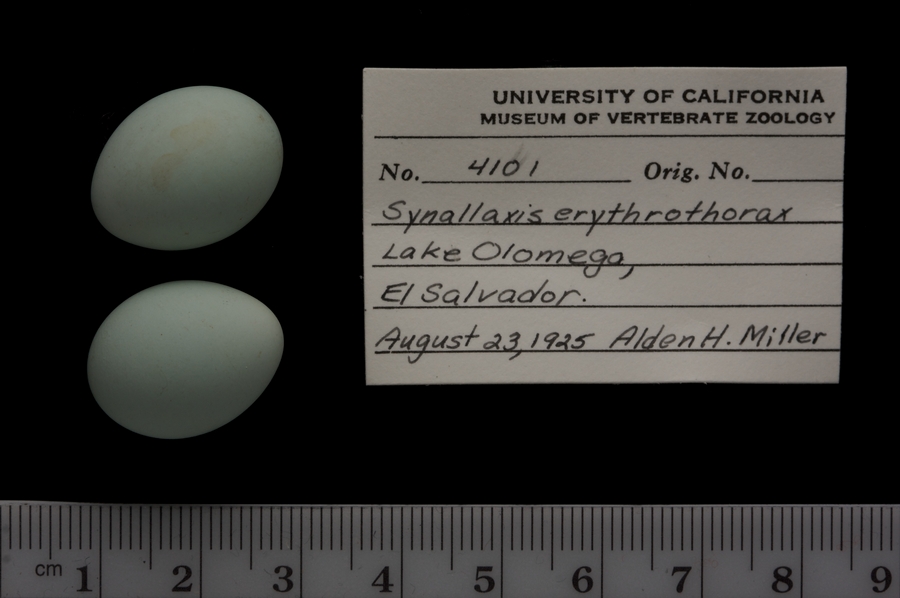 UNIVERSITY OF CALIFORNIA
MUSEUM OF VERTEBRATE ZOOLOGY
No. 4101 Orig. No.
Synallaxis erythrothorax
Lake Olomega,
El Salvador.
August 23, 1925 Alden H. Miller
cm 1 2 3 4 5 6 7 8 9